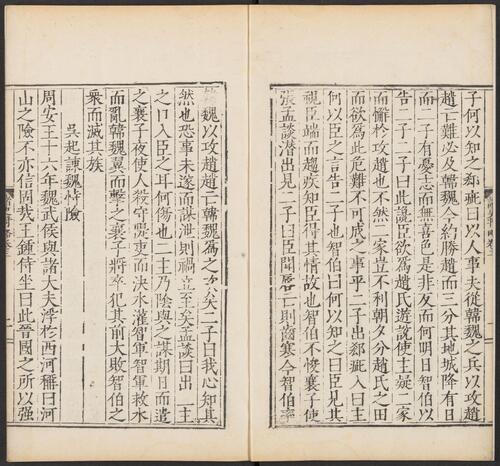 子何以知之郄疵曰以人事夫從韓魏之兵以攻趙
趙亡難必及韓魏今約勝趙而三分其地城降有日
而二子有憂志而無喜色是非反而何明日智伯以
告二子二子曰此讒臣欲爲趙氏遊說使主疑二家
而懈於攻趙也不然二家豈不利朝夕分趙氏之田
而欲爲此危難不可成之事乎二子出郄疵入曰主
何以臣之言告二子也智伯曰何以知之曰臣見其
視臣端而趨疾知臣得其情故也智伯不悛襄子使
張孟談潛出見二子曰臣聞唇亡則齒寒今智伯率
韓魏以攻趙趙亡韓魏爲之次矣二子曰我心知其
然也恐事未遂而謀泄則禍立至矣孟談曰出二主
之口入臣之耳何傷也二主乃陰與之謀期日而遣
之襄子夜使人殺守堤吏而決水灌智軍智軍救水
而亂韓魏翼而擊之襄子將卒犯其前大敗智伯之
衆而滅其族
吳起諫魏恃險
周安王十六年魏武侯與諸大夫浮於西河稱曰河
山之險不亦信固哉王鍾侍坐曰此晉國之所以強